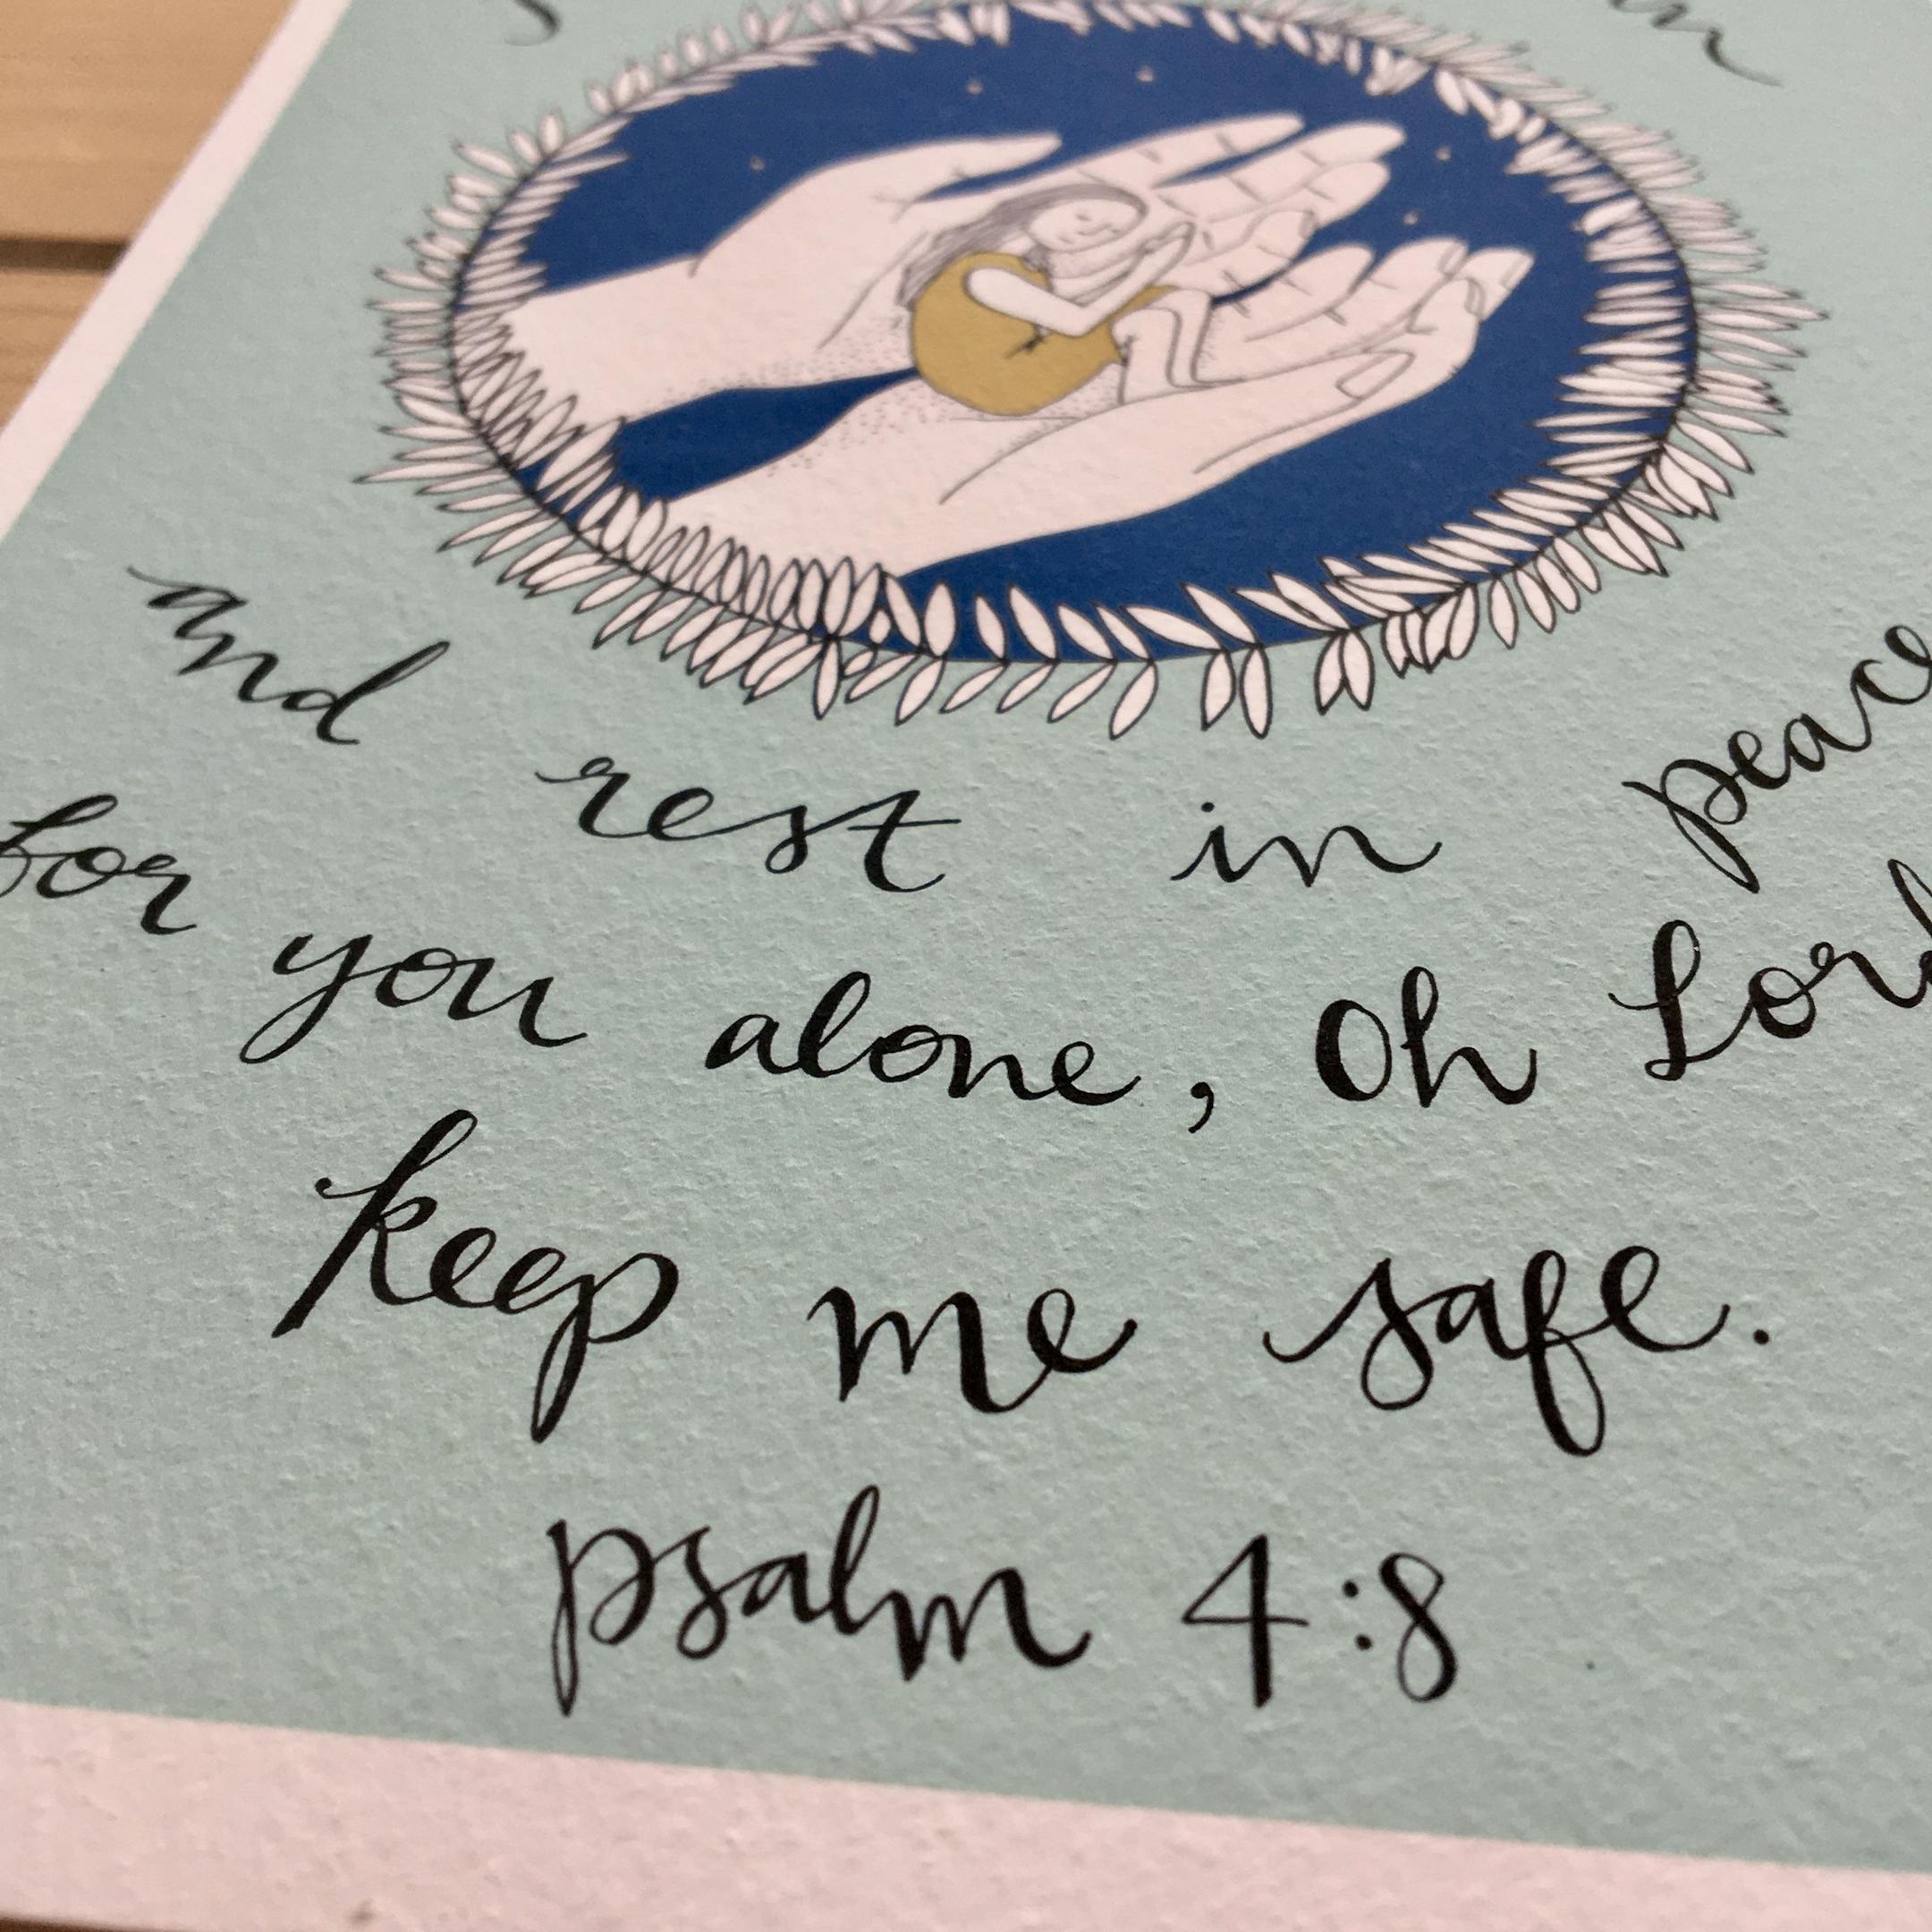 and rest in peace
for you alone, Oh Lord
keep me safe.
psalm 4:8